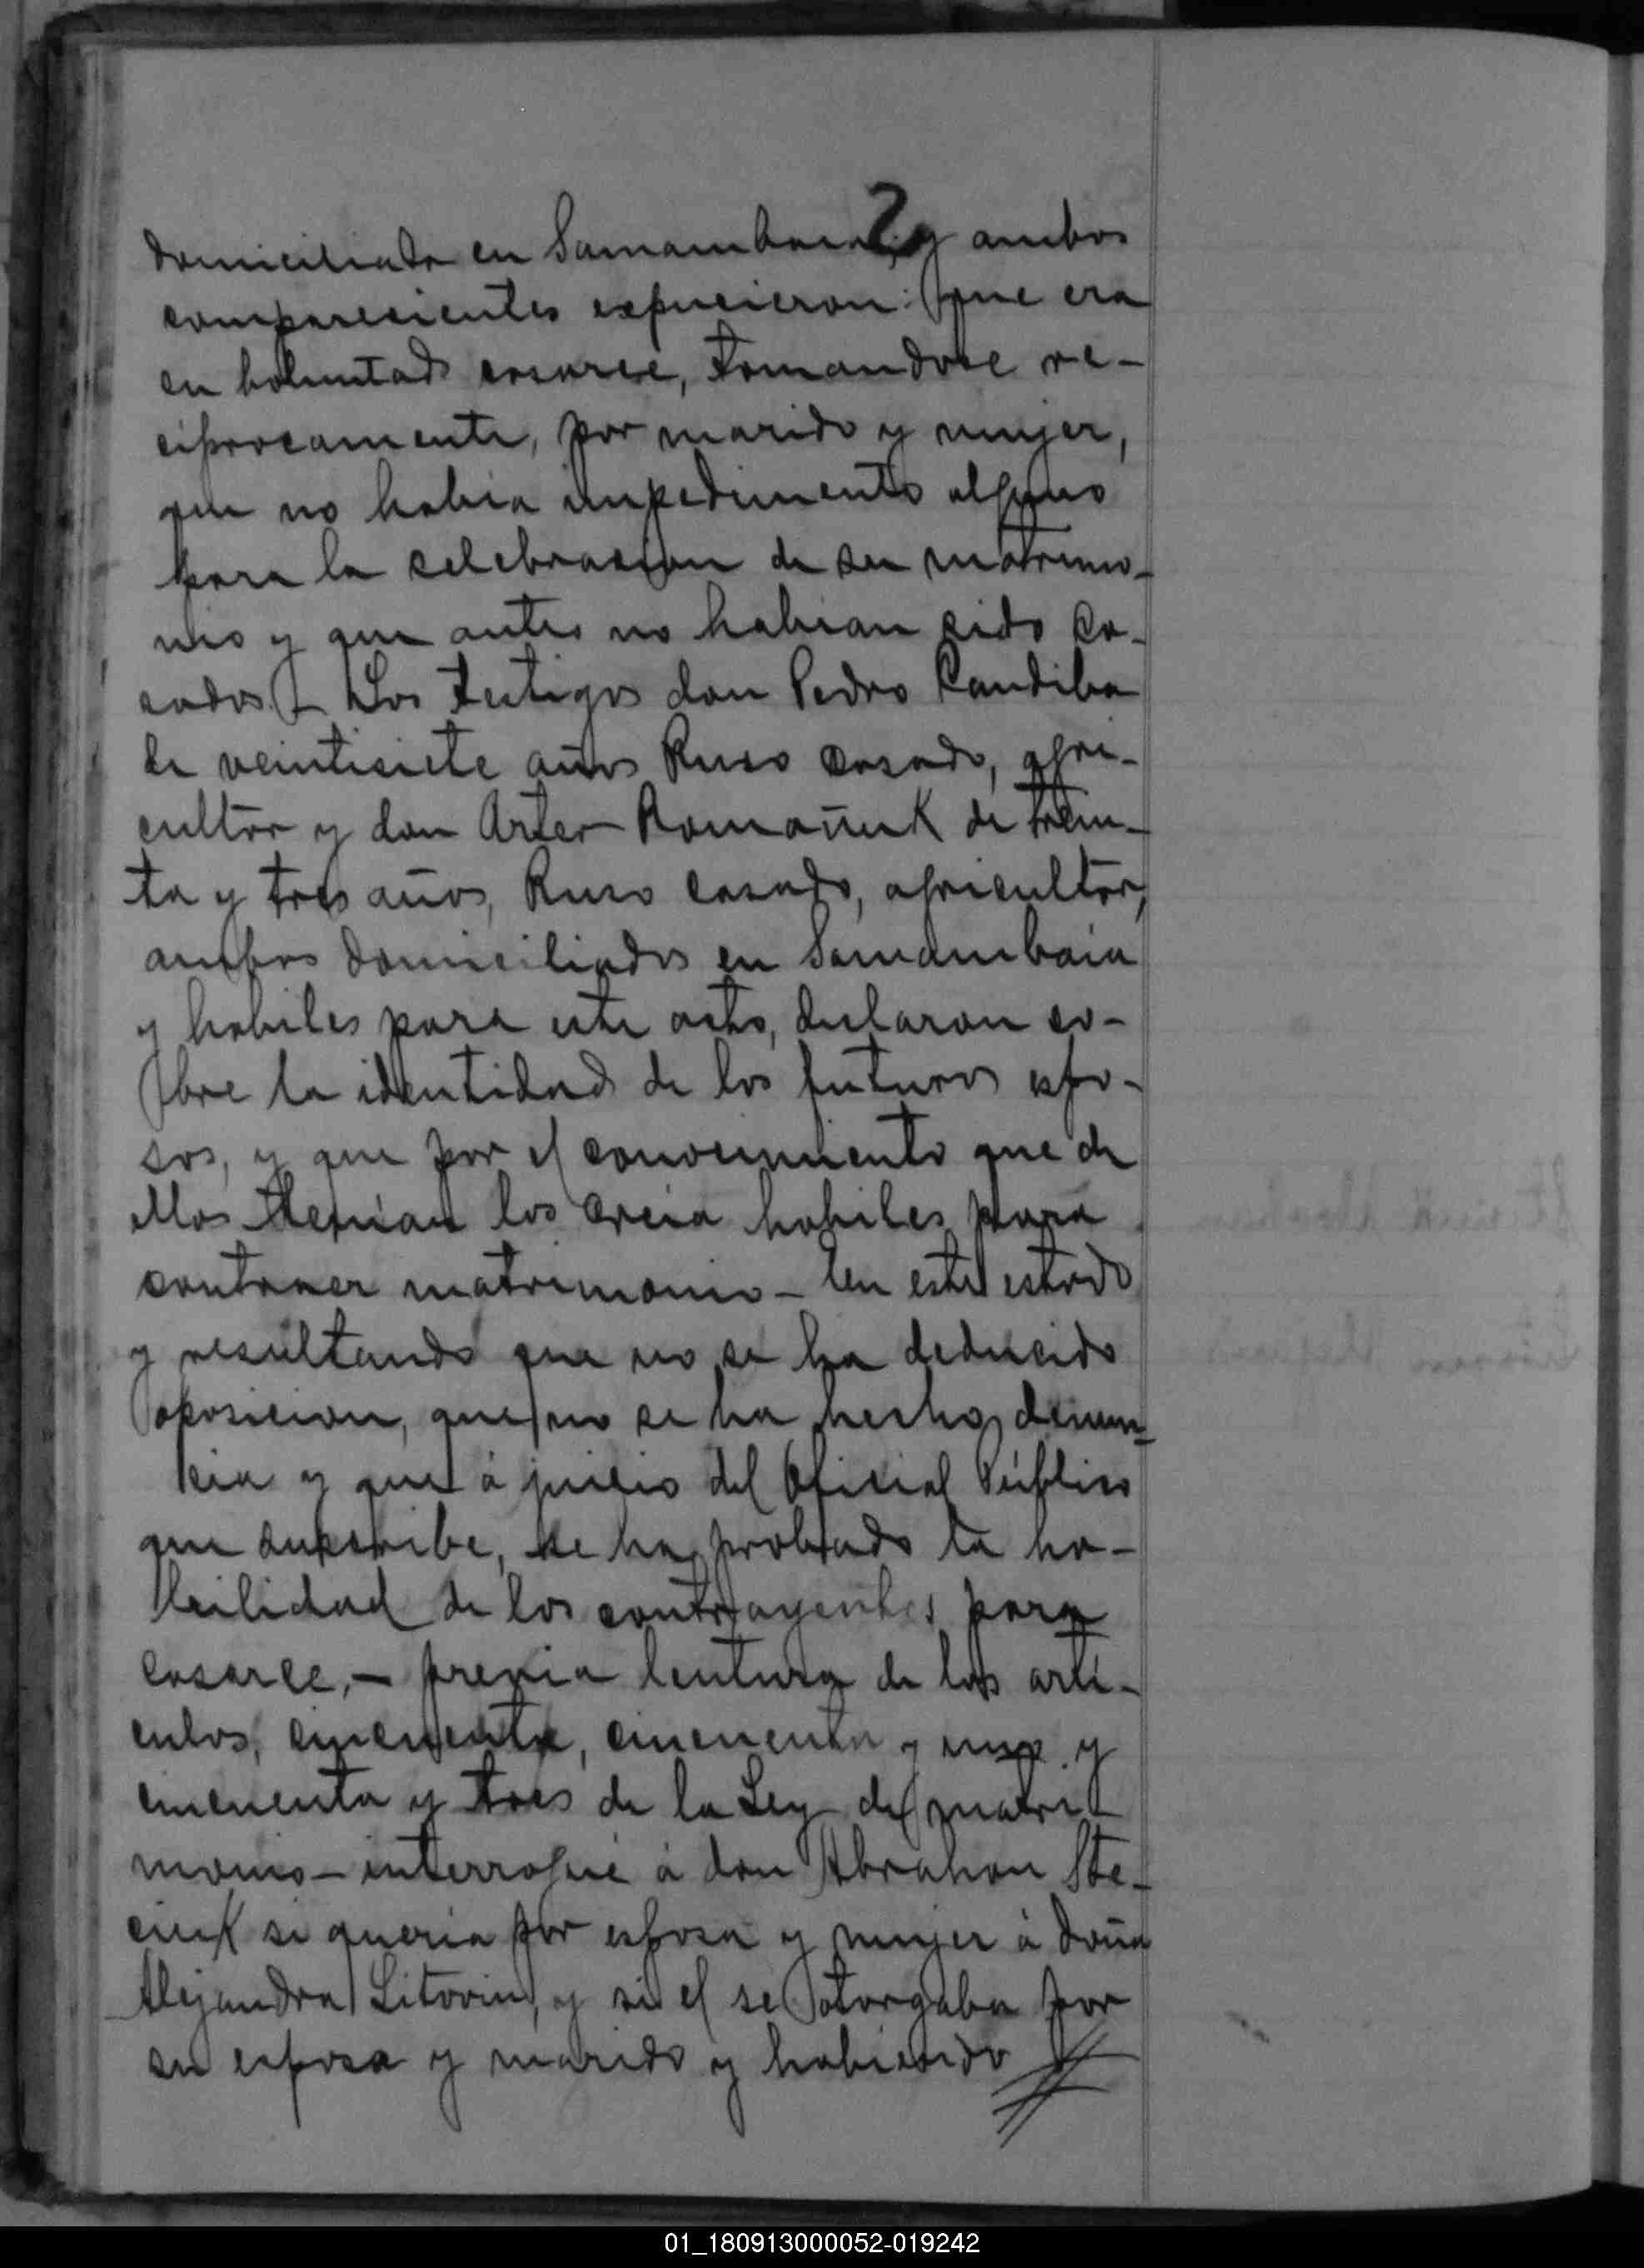 domiciliada en Samambaia, y ambos
comparecientes expucieron: que era
su boluntad casarce, tomandose re-
ciprocamente, por marido y mujer,
que no habia impedimento alguno
para la celebracion de su matrimo-
nio y que antes no habian sido ca-
sados.- Los testigos don Pedro Candiba
de veintisiete años Ruso casado, agri-
cultor y don Arter Romañuk de trein-
ta y tres años, Ruso casado, agricultor,
ambos domiciliados en Samambaia
y habiles para este acto, declaron so-
bre la identidad de los futuros espo-
sos, y que por el conocimiento que de
ellos tenian los creia habiles para
contraer matrimonio - En este estado
y resultando que no se ha deducido
oposicion, que no se ha hecho denun-
cia y que á juicio del Oficial Público
que suscribe, se ha probado la ha-
bilidad de los contrayentes para
casarce, - previa lectura de los artí-
culos, cincuenta, cincuenta y uno y
cincuenta y tres de la Ley de matri-
monio - interrogué á don Abrahan Ste-
ciuk si queria por esposa y mujer á doña
Alejandra Litovin, y si el se otorgaba por
su esposo y marido y habiendo
01_180913000052-019242